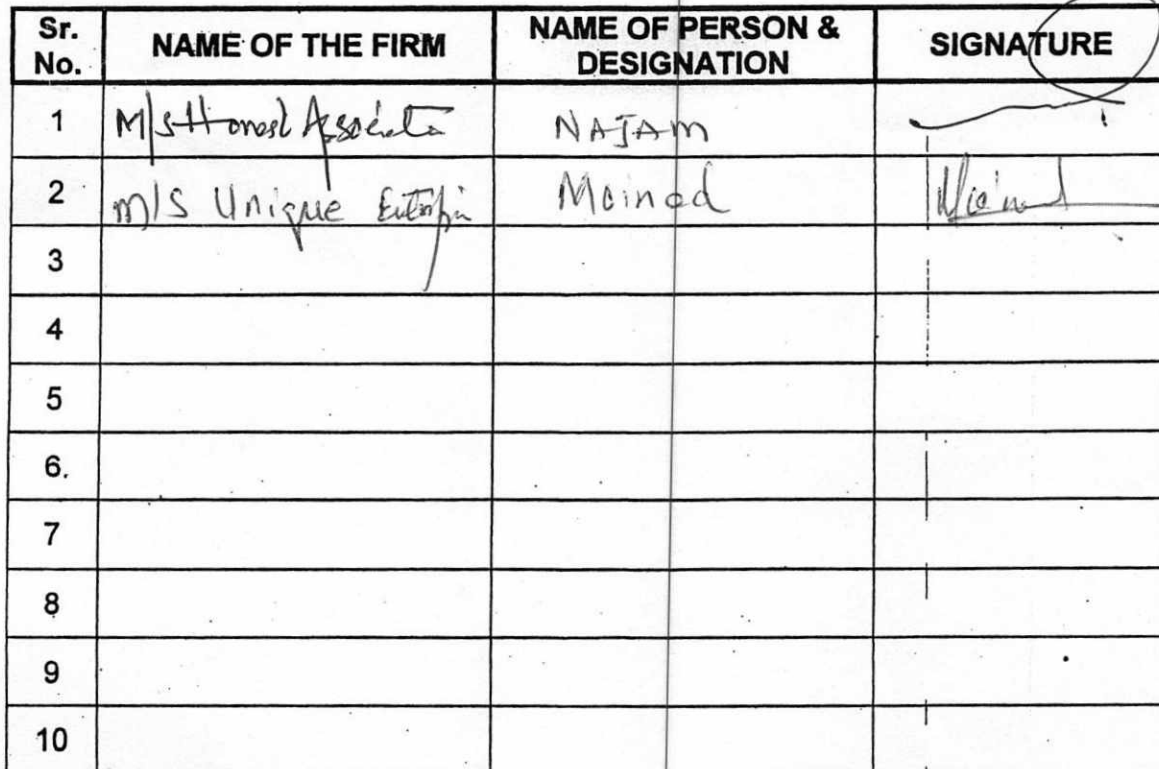 Sr. No. NAME OF THE FIRM NAME OF PERSON & DESIGNATION SIGNATURE
1 M/s Honest Associate NAJAM
2 M/S Unique Moined
3
4
5
6.
7
8
9
10